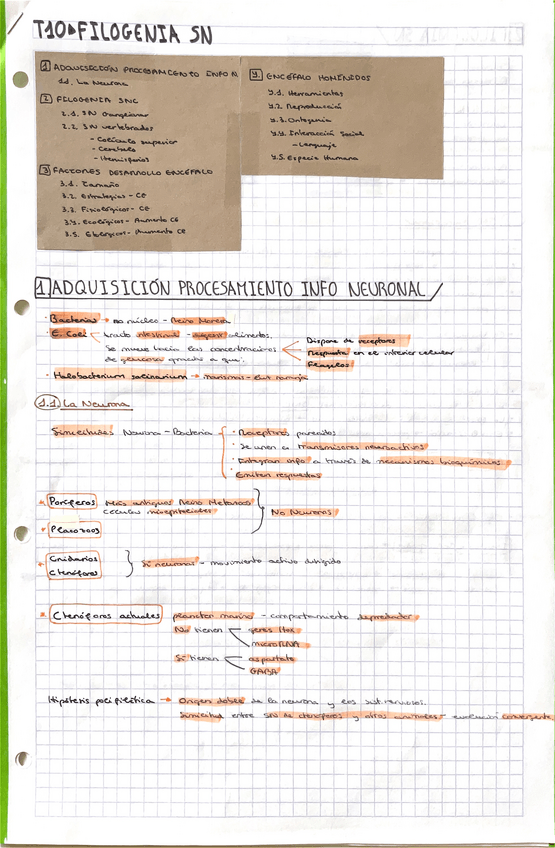 T10 FILOGENIA SN
1 ADQUISICIÓN PROCESAMIENTO INFO N.
1.1. La Neurona
2 FILOGENIA SNC
2.1. SN Ganglionar
2.2. SN vertebrados
- Colículo superior
- Cerebelo
- Hemisferios
3 FACTORES DESARROLLO ENCÉFALO
3.1. Tamaño
3.2. Estrategias - CE
3.3. Fisiológicos - CE
3.4. Ecológicos - Aumento CE
3.5. Etológicos - Aumento CE
4. ENCÉFALO HOMÍNIDOS
4.1. Herramientas
4.2. Reproducción
4.3. Ontogenia
4.4. Interacción Social
- Lenguaje
4.5. Especie Humana
1 ADQUISICIÓN PROCESAMIENTO INFO NEURONAL
· Bacterias → no núcleo - Reino Monera
· E. Coli tracto intestinal - digerir alimentos.
Se mueve hacia las concentraciones
de glucosa gracias a que:
Dispone de receptores
Respuesta en el interior celular
Flagelos
· Halobacterium salinarium → transmis - luz naranja
1.1 La Neurona
Similitudes Neurona - Bacteria
· Receptores pareados
· Se unen a transmisores neuroactivos
· Integran info a través de mecanismos bioquímicos
· Emiten respuestas
Poríferos Más antiguos Reino Metazoos
Células mioepiteliales
Placozoos
No Neuronas
Cnidarios
Ctenóforos
Si neuronas - movimiento activo dirigido
Ctenóforos actuales plancton marino - comportamiento depredador
No tienen genes Hox
microRNA
Si tienen aspartato
GABA
Hipótesis polifilética → Origen doble de la neurona y los sist. nerviosos.
Similitud entre SN de ctenóforos y otros animales - evolución convergente